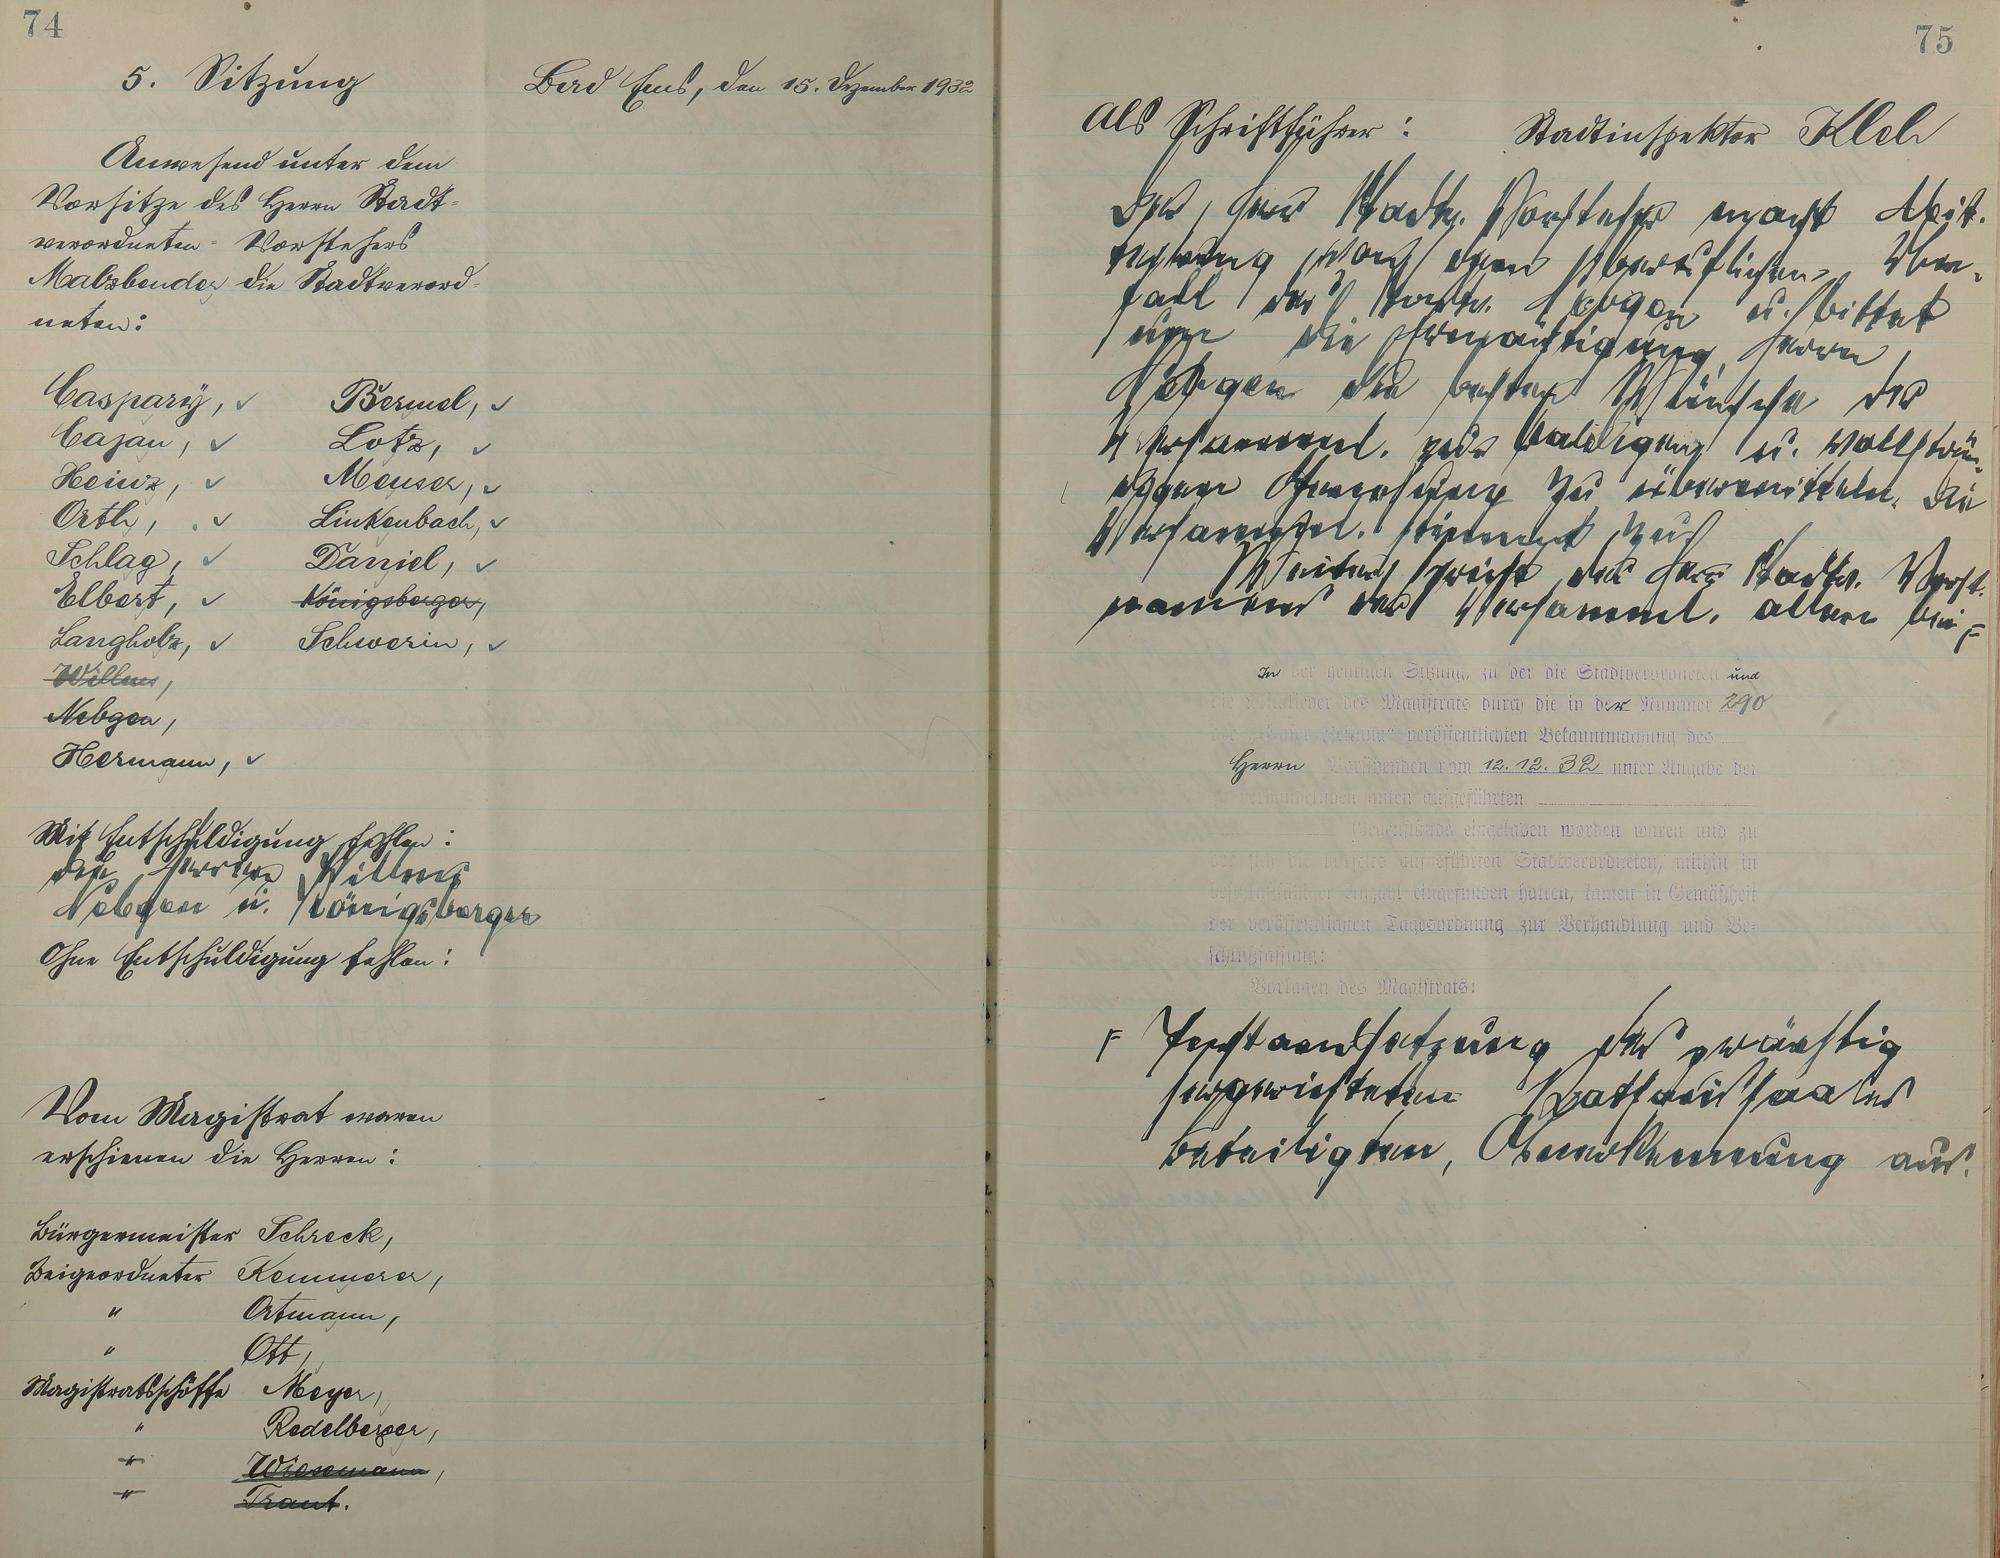 74
5. Sitzung
Bad Ems, den 15. Dezember 1932
Anwesend unter dem
Vorsitze des Herrn Stadt-
verordneten-Vorstehers
Malzbender die Stadtverord-
neten:
Caspary, ✓ Bermel, ✓
Cajan, ✓ Lotz, ✓
Heinz, ✓ Meuser, ✓
Orth, ✓ Linkenbach, ✓
Schlag, ✓ Daniel, ✓
Elbert, ✓ Königsberger,
Langholz, ✓ Schwerin, ✓
Willms,
Nebgen,
Hermann, ✓
Mit Entschuldigung fehlen:
die Herren Willms
Nebgen u. Königsberger
Ohne Entschuldigung fehlen:
Vom Magistrat waren
erschienen die Herren:
Bürgermeister Schreck,
Beigeordneter Kemmerer,
" Ortmann,
" Ott,
Magistratsschöffe Meyer,
" Redelberger,
" Wiesemann,
" Traut.
75
Als Schriftführer: Stadtinspektor
Der Herr Stadtv. Vorsteher macht Mit-
von dem
fall des Stadtv. Nebgen u. bittet
um die Ermächtigung, Herrn
Nebgen die besten Wünsche der
Versamml. zur baldigen u. vollstän-
digen Genesung zu übermitteln. Die
Versamml. stimmt zu.
Weiter spricht der Herr Stadtv. Vorst.
namens der Versamml. allen bei
In der heutigen Sitzung, zu der die Stadtverordneten und
die Mitglieder des Magistrats durch die in der Nummer 290
der Zeitung" veröffentlichten Bekanntmachung des
Herrn Vorsitzenden vom 12.12.32 unter Angabe der
verhandelnden unten aufgeführten
Gegenstände eingeladen worden waren und zu
der sich die vorseits aufgeführten Stadtverordneten, mithin in
beschlußfähiger Anzahl eingefunden hatten, kamen in Gemäßheit
der veröffentlichten Tagesordnung zur Verhandlung und Be-
schlußfassung:
Vorlagen des Magistrats:
F Instandsetzung des prächtig
hergerichteten Rathaussaales
beteiligten, Anerkennung aus.